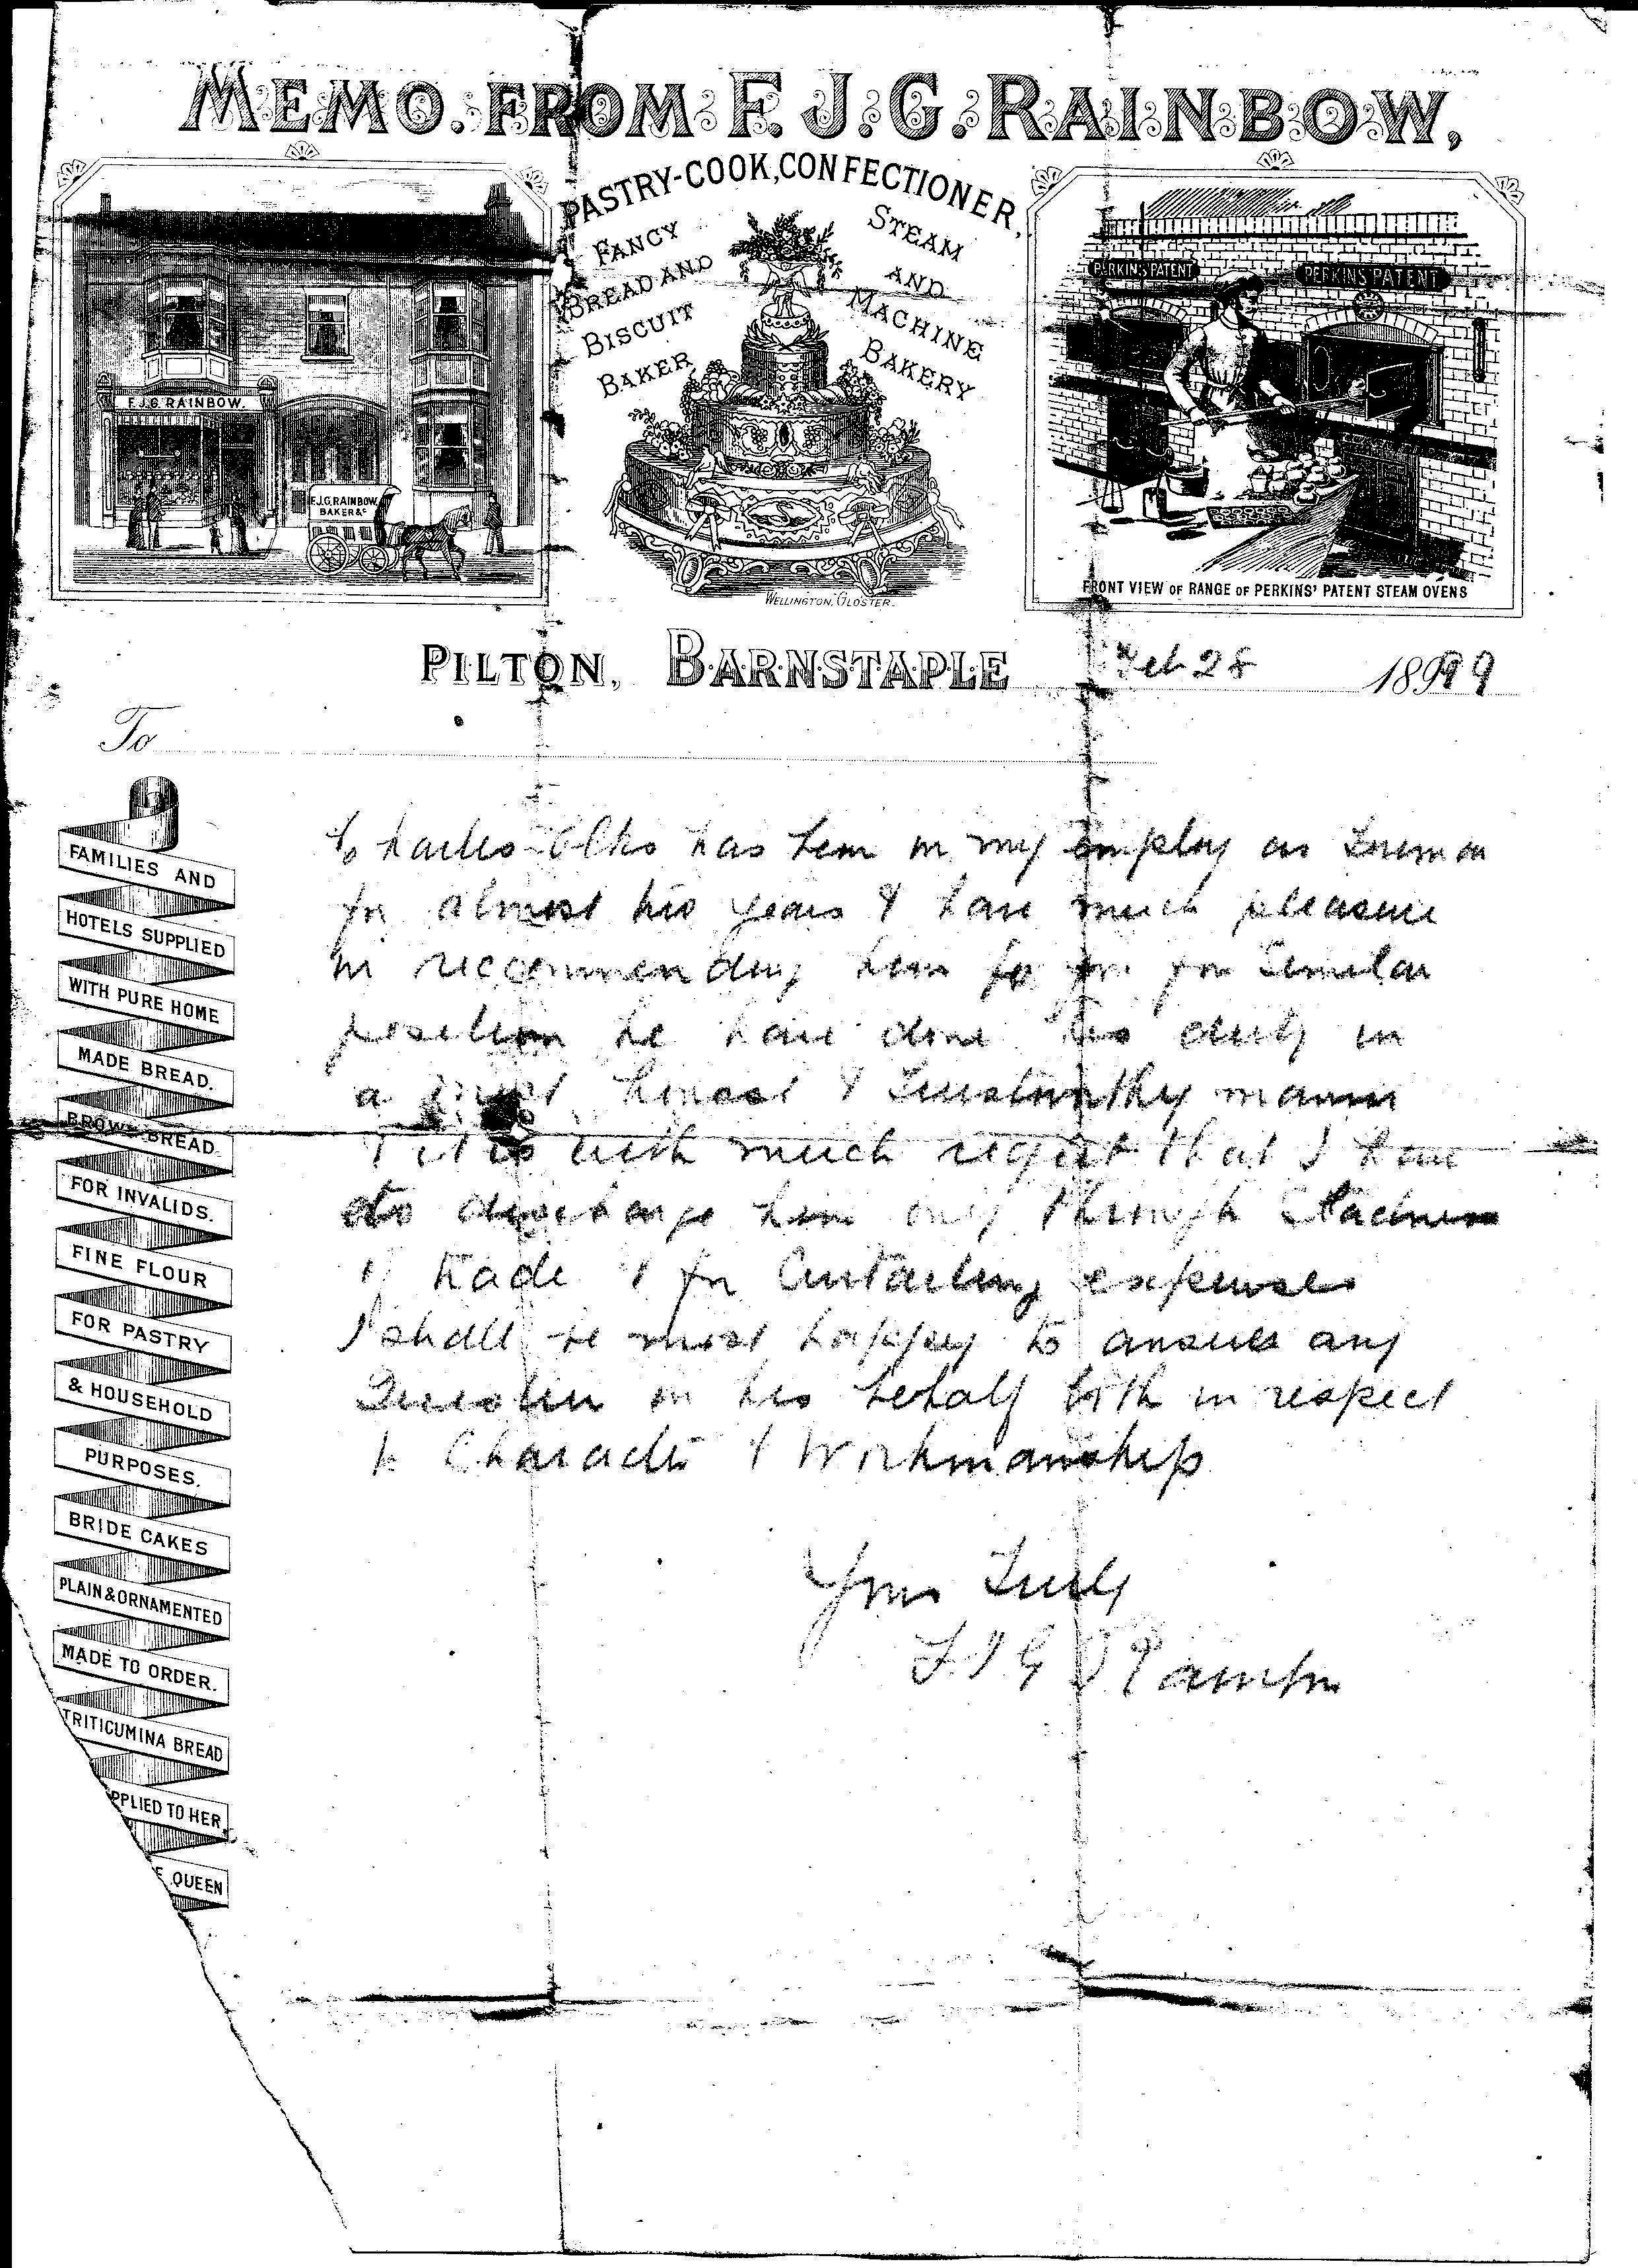 MEMO. FROM F. J. G. RAINBOW,
PASTRY-COOK, CONFECTIONER,
FANCY
BREAD AND
BISCUIT
BAKER
STEAM
AND
MACHINE
BAKERY
F.J.G. RAINBOW.
F.J.G. RAINBOW
BAKER &c
WELLINGTON, GLOSTER.
PERKINS PATENT
PERKINS PATENT
FRONT VIEW OF RANGE OF PERKINS' PATENT STEAM OVENS
PILTON, BARNSTAPLE Feb 28 1899
To
FAMILIES AND
HOTELS SUPPLIED
WITH PURE HOME
MADE BREAD.
BROWN BREAD
FOR INVALIDS.
FINE FLOUR
FOR PASTRY
& HOUSEHOLD
PURPOSES.
BRIDE CAKES
PLAIN & ORNAMENTED
MADE TO ORDER.
TRITICUMINA BREAD
PPLIED TO HER
E QUEEN
Charles has been in my employ as
for almost two years & have much pleasure
in recommending him for similar
position he have done his duty in
a most honest & trustworthy manner
& it is with much regret that I have
to discharge him only through Slackness
of trade & for Curtailing expenses
I shall be most happy to answer any
Question on his behalf both in respect
to Character & Workmanship
Yours Truly
F J G Rainbow